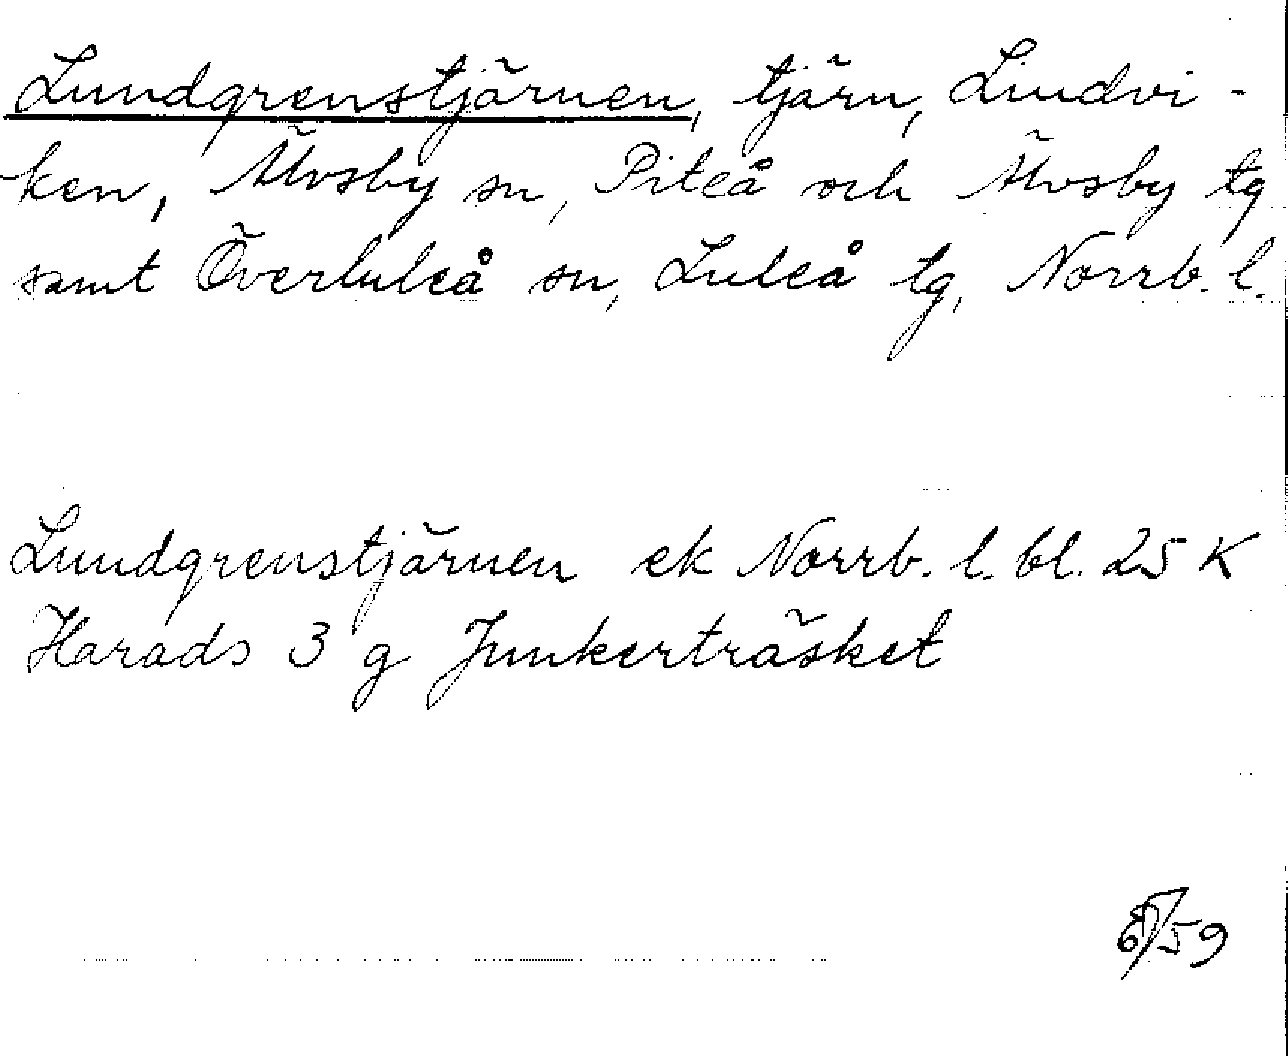 Lundgrenstjärnen, tjärn, Lindvi-
ken, Älvsby sn, Piteå och Älvsby tg
samt Överluleå sn, Luleå tg, Norrb. l.
Lundgrenstjärnen ek Norrb. l. bl. 25 K
Harads 3 g Junkerträsket
59